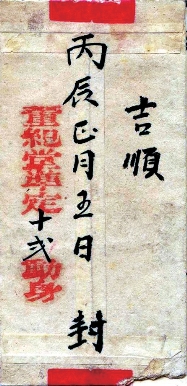 吉順
丙辰正月五日 封
董紀堂定十弍動身